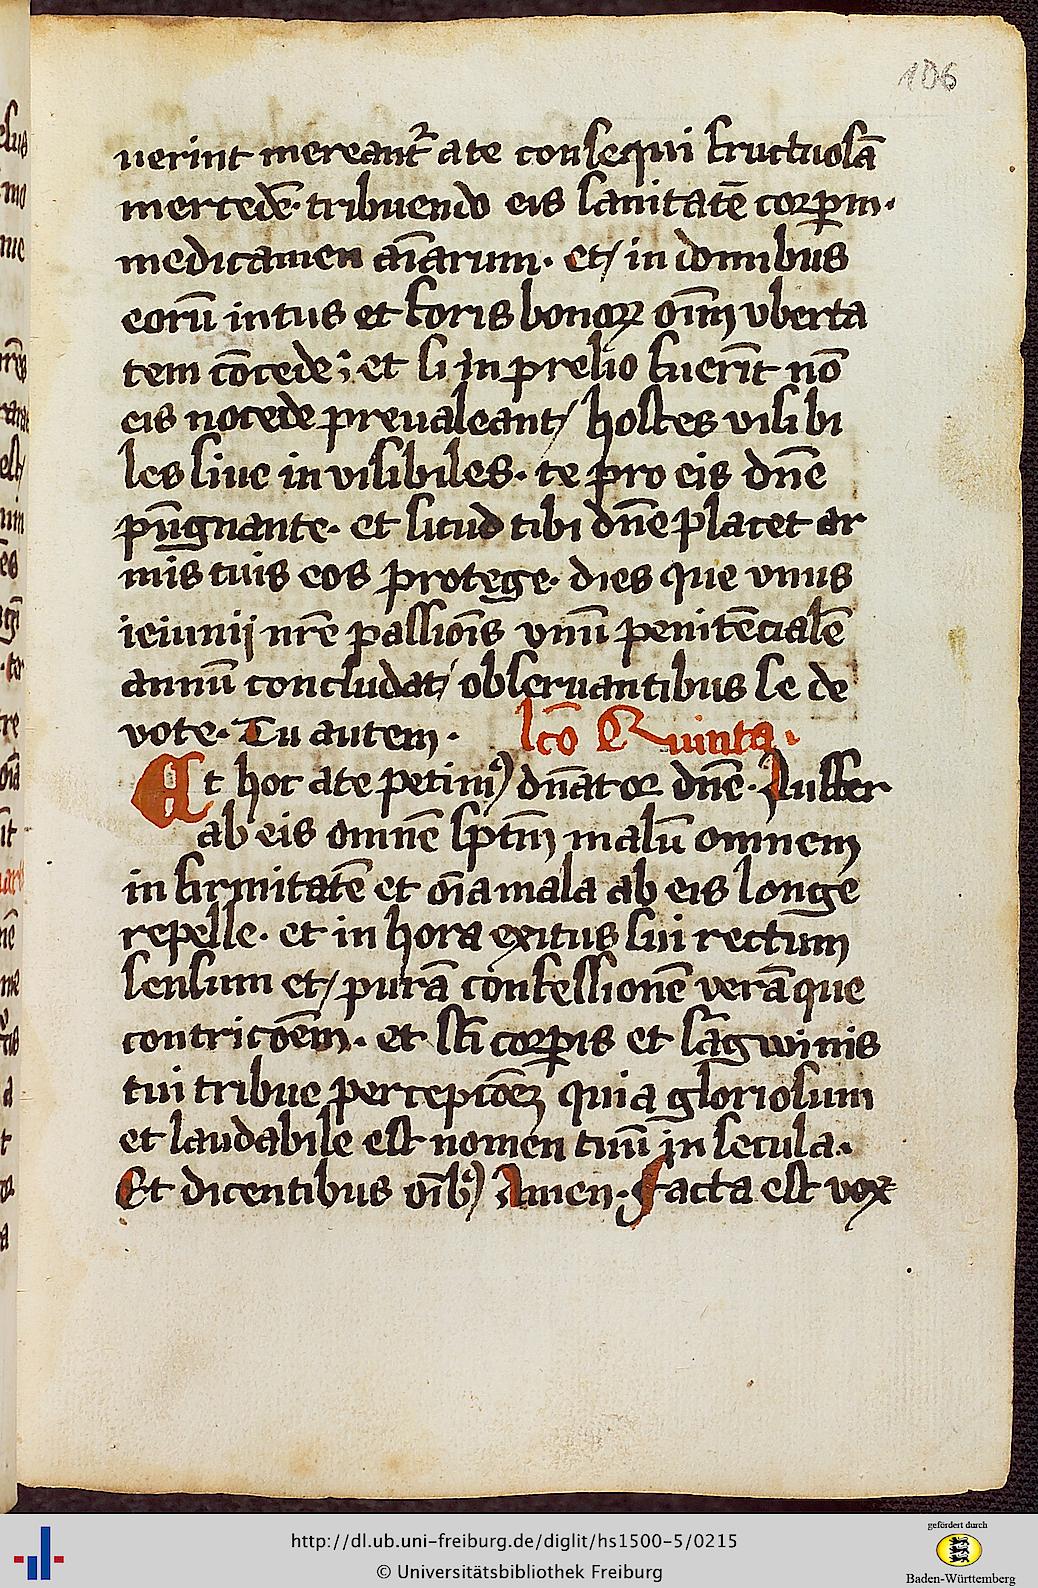 106
uerint mereant᷑ a te consequi fructuosā
mercedē· tribuendo eis sanitatē corꝑm·
medicamen aīarum· et/ in domibus
eorū intus et foris bonoꝝ oīm vberta
tem cōcede; et si in prelio fuerīt nō
eis nocede preualeant/ hostes visibi
les siue in visibiles· te pro eis dn̄e
pūgnante· et sicud tibi dn̄e placet ar
mis tuis eos protege· dies que vnus
ieiunij nr̄e passiōis vnū penitēcialē
annū concludat/ obseruantibus se de
vote· Tu autem· lc̄o Quinta·
Et hoc a te petimꝰ dn̄ator dn̄e· Auffer
ab eis omnē sp̄tm̄ malū omnem
in firmitatē et oīa mala ab eis longe
repelle· et in hora exitus sui rectūm
sensum et/ purā confessionē verāque
contricōem· et sc̄i corꝑis et sāgwinis
tui tribue percepcōeꝫ quia gloriosum
et laudabile est nomen tuū in secula·
Et dicentibus oīb᷒ Amen· Facta est vox
http://dl.ub.uni-freiburg.de/diglit/hs1500-5/0215
© Universitätsbibliothek Freiburg
gefördert durch
Baden-Württemberg